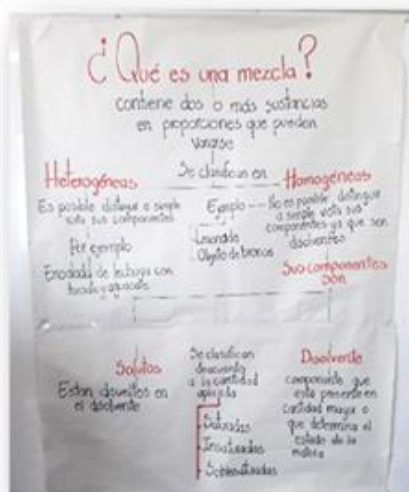 ¿Qué es una mezcla?
contiene dos o más sustancias
en proporciones que pueden
variarse
Se clasifican en
Heterogéneas
Es posible distinguir a simple
vista sus componentes
Por ejemplo
Ensalada de lechuga con
tomate y aguacate
Homogéneas
Ejemplo
No es posible distinguir
a simple vista sus
componentes ya que son
disolventes
Limonada
Objeto de bronce
Sus componentes
son
Solutos
Estan disueltos en
el disolvente
Se clasifican
deacuerdo
a la cantidad
Saturadas
Insaturadas
Sobresaturadas
Disolvente
componente que
está presente en
cantidad mayor o
que determina el
estado de la
materia